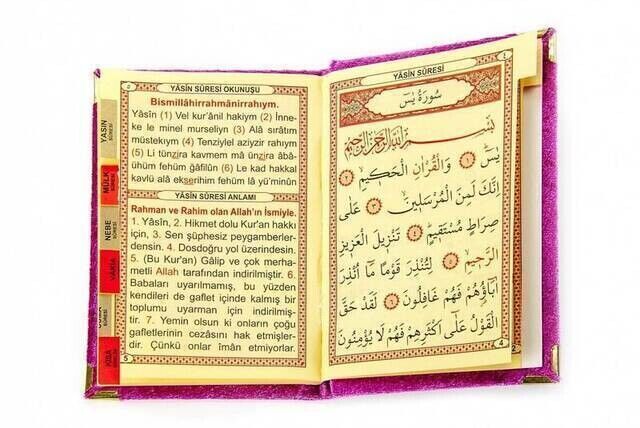 YÂSÎN SÛRESİ OKUNUŞU
Bismillâhirrahmânirrahıym.
Yâsîn (1) Vel kur'ânil hakiym (2) İnne-
ke le minel murseliyn (3) Alâ sırâtım
müstekıym (4) Tenziylel aziyzir rahıym
(5) Li tünzira kavmem mâ ünzira âbâ-
ühüm fehüm gâfilûn (6) Le kad hakkal
kavlü alâ ekserihim fehüm lâ yü'minûn
YÂSÎN SÛRESİ ANLAMI
Rahman ve Rahim olan Allah'ın İsmiyle.
1. Yâsîn, 2. Hikmet dolu Kur'an hakkı
için, 3. Sen şüphesiz peygamberler-
densin. 4. Dosdoğru yol üzerindesin.
5. (Bu Kur'an) Gâlip ve çok merha-
metli Allah tarafından indirilmiştir. 6.
Babaları uyarılmamış, bu yüzden
kendileri de gaflet içinde kalmış bir
toplumu uyarman için indirilmiş-
tir. 7. Yemin olsun ki onların çoğu
gafletlerinin cezasını hak etmişler-
dir. Çünkü onlar iman etmiyorlar.
5
YASIN
SÛRESİ
MÜLK
SÛRESİ
NEBE
SÛRESİ
KISA
YÂSÎN SÛRESİ
سُورَةُ يٰسٓ
بِسْمِ اللّٰهِ الرَّحْمٰنِ الرَّحِيمِ
يٰسٓ ﴿١﴾ وَالْقُرْاٰنِ الْحَكِيمِ ﴿٢﴾
اِنَّكَ لَمِنَ الْمُرْسَلِينَ ﴿٣﴾ عَلٰى
صِرَاطٍ مُسْتَقِيمٍ ﴿٤﴾ تَنْزِيلَ الْعَزِيزِ
الرَّحِيمِ ﴿٥﴾ لِتُنْذِرَ قَوْمًا مَٓا اُنْذِرَ
اٰبَٓاؤُهُمْ فَهُمْ غَافِلُونَ ﴿٦﴾ لَقَدْ حَقَّ
الْقَوْلُ عَلٰٓى اَكْثَرِهِمْ فَهُمْ لَا يُؤْمِنُونَ
4
2